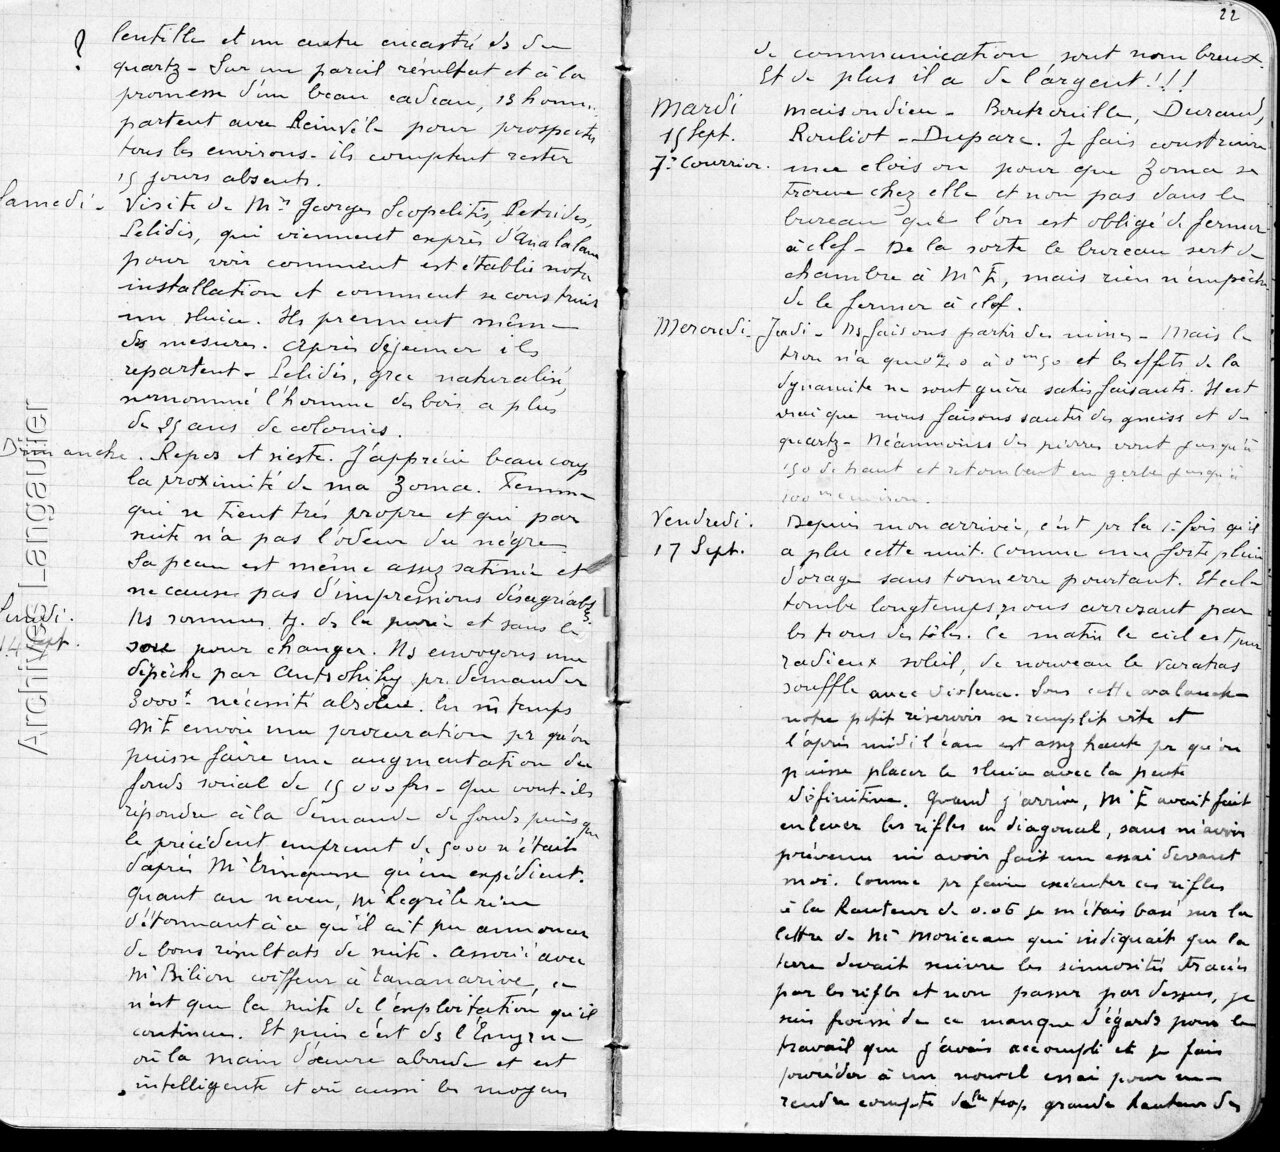 ?
lentille et un autre encastré ds du
quartz - Sur un pareil résultat et à la
promesse d'un beau cadeau, 15 hommes
partent avec pour prospecter
tous les environs - ils comptent rester
15 jours absents.
Samedi - Visite de Mrs Georges Scopelitis, Petrides,
Pelidis, qui viennent exprès d'Analalava
pour voir comment est établie notre
installation et comment se construit
un sluice. Ils prennent même
des mesures. Après déjeuner ils
repartent - Pelidis, grec naturalisé,
surnommé l'homme des bois a plus
de 25 ans de colonies.
Dimanche. Repos et sieste. J'apprécie beaucoup
la proximité de ma Zoma. Femme
qui se tient très propre et qui par
suite n'a pas l'odeur du nègre.
Sa peau est même assez satinée et
ne cause pas d'impressions désagréables.
Lundi.
14 Sept.
Ns sommes tj. ds la purée et sans le
sou pour changer. Ns envoyons une
dépêche par Antsohihy pr. demander
3000f nécessité absolue. En m̂ temps
Mr E envoie une procuration pr qu'on
puisse faire une augmentation du
fonds social de 15000frs - Que vont-ils
répondre à la demande de fonds puisque
le précédent emprunt de 5000 n'était
d'après Mr qu'un expédient.
Quant au neveu, Mr rien
d'étonnant à ce qu'il ait pu annoncer
de bons résultats de suite. Associé avec
Mr Bilion coiffeur à Tananarive, ce
n'est que la suite de l'exploitation qu'il
continue. Et puis c'est ds l'Emyrne
où la main d'œuvre abonde et est
intelligente et où aussi les moyens
22
de communication sont nombreux.
Et de plus il a de l'argent!!!
Mardi
15 Sept.
7e Courrier.
Maisondieu - Boutrouille, Durand,
Rouliot - Duparc. Je fais construire
une cloison pour que Zoma se
trouve chez elle et non pas dans le
bureau que l'on est obligé de fermer
à clef - De la sorte le bureau sert de
chambre à Mr E, mais rien n'empêche
de le fermer à clef.
Mercredi - Jeudi - Ns faisons partir des mines - Mais le
trou n'a que 0m40 à 0m50 et les effets de la
dynamite ne sont guère satisfaisants. Il est
vrai que nous faisons sauter des gneiss et du
quartz - Néanmoins des pierres vont jusqu'à
150 de haut et retombent en gerbe jusqu'à
100m environ.
Vendredi.
17 Sept.
Depuis mon arrivée, c'est pr la 1e fois qu'il
a plu cette nuit. Comme une forte pluie
d'orage sans tonnerre pourtant. Et cela
tombe longtemps nous arrosant par
les trous des tôles. Ce matin le ciel est pur
radieux soleil, de nouveau le varatras
souffle avec violence. Sous cette avalanche
notre petit réservoir se remplit vite et
l'après midi l'eau est assez haute pr qu'on
puisse placer le sluice avec la pente
définitive. Quand j'arrive, Mr E avait fait
enlever les rifles en diagonal, sans m'avoir
prévenu ni avoir fait un essai devant
moi. Comme pr faire exécuter ces rifles
à la hauteur de 0.06 je m'étais basé sur la
lettre de Mr Moriceau qui indiquait que la
terre devait suivre les sinuosités tracées
par les rifles et non passer par dessus, je
suis froissé de ce manque d'égards pour le
travail que j'avais accompli et je fais
procéder à un nouvel essai pour me
rendre compte de la trop grande hauteur des
Archives Langautier